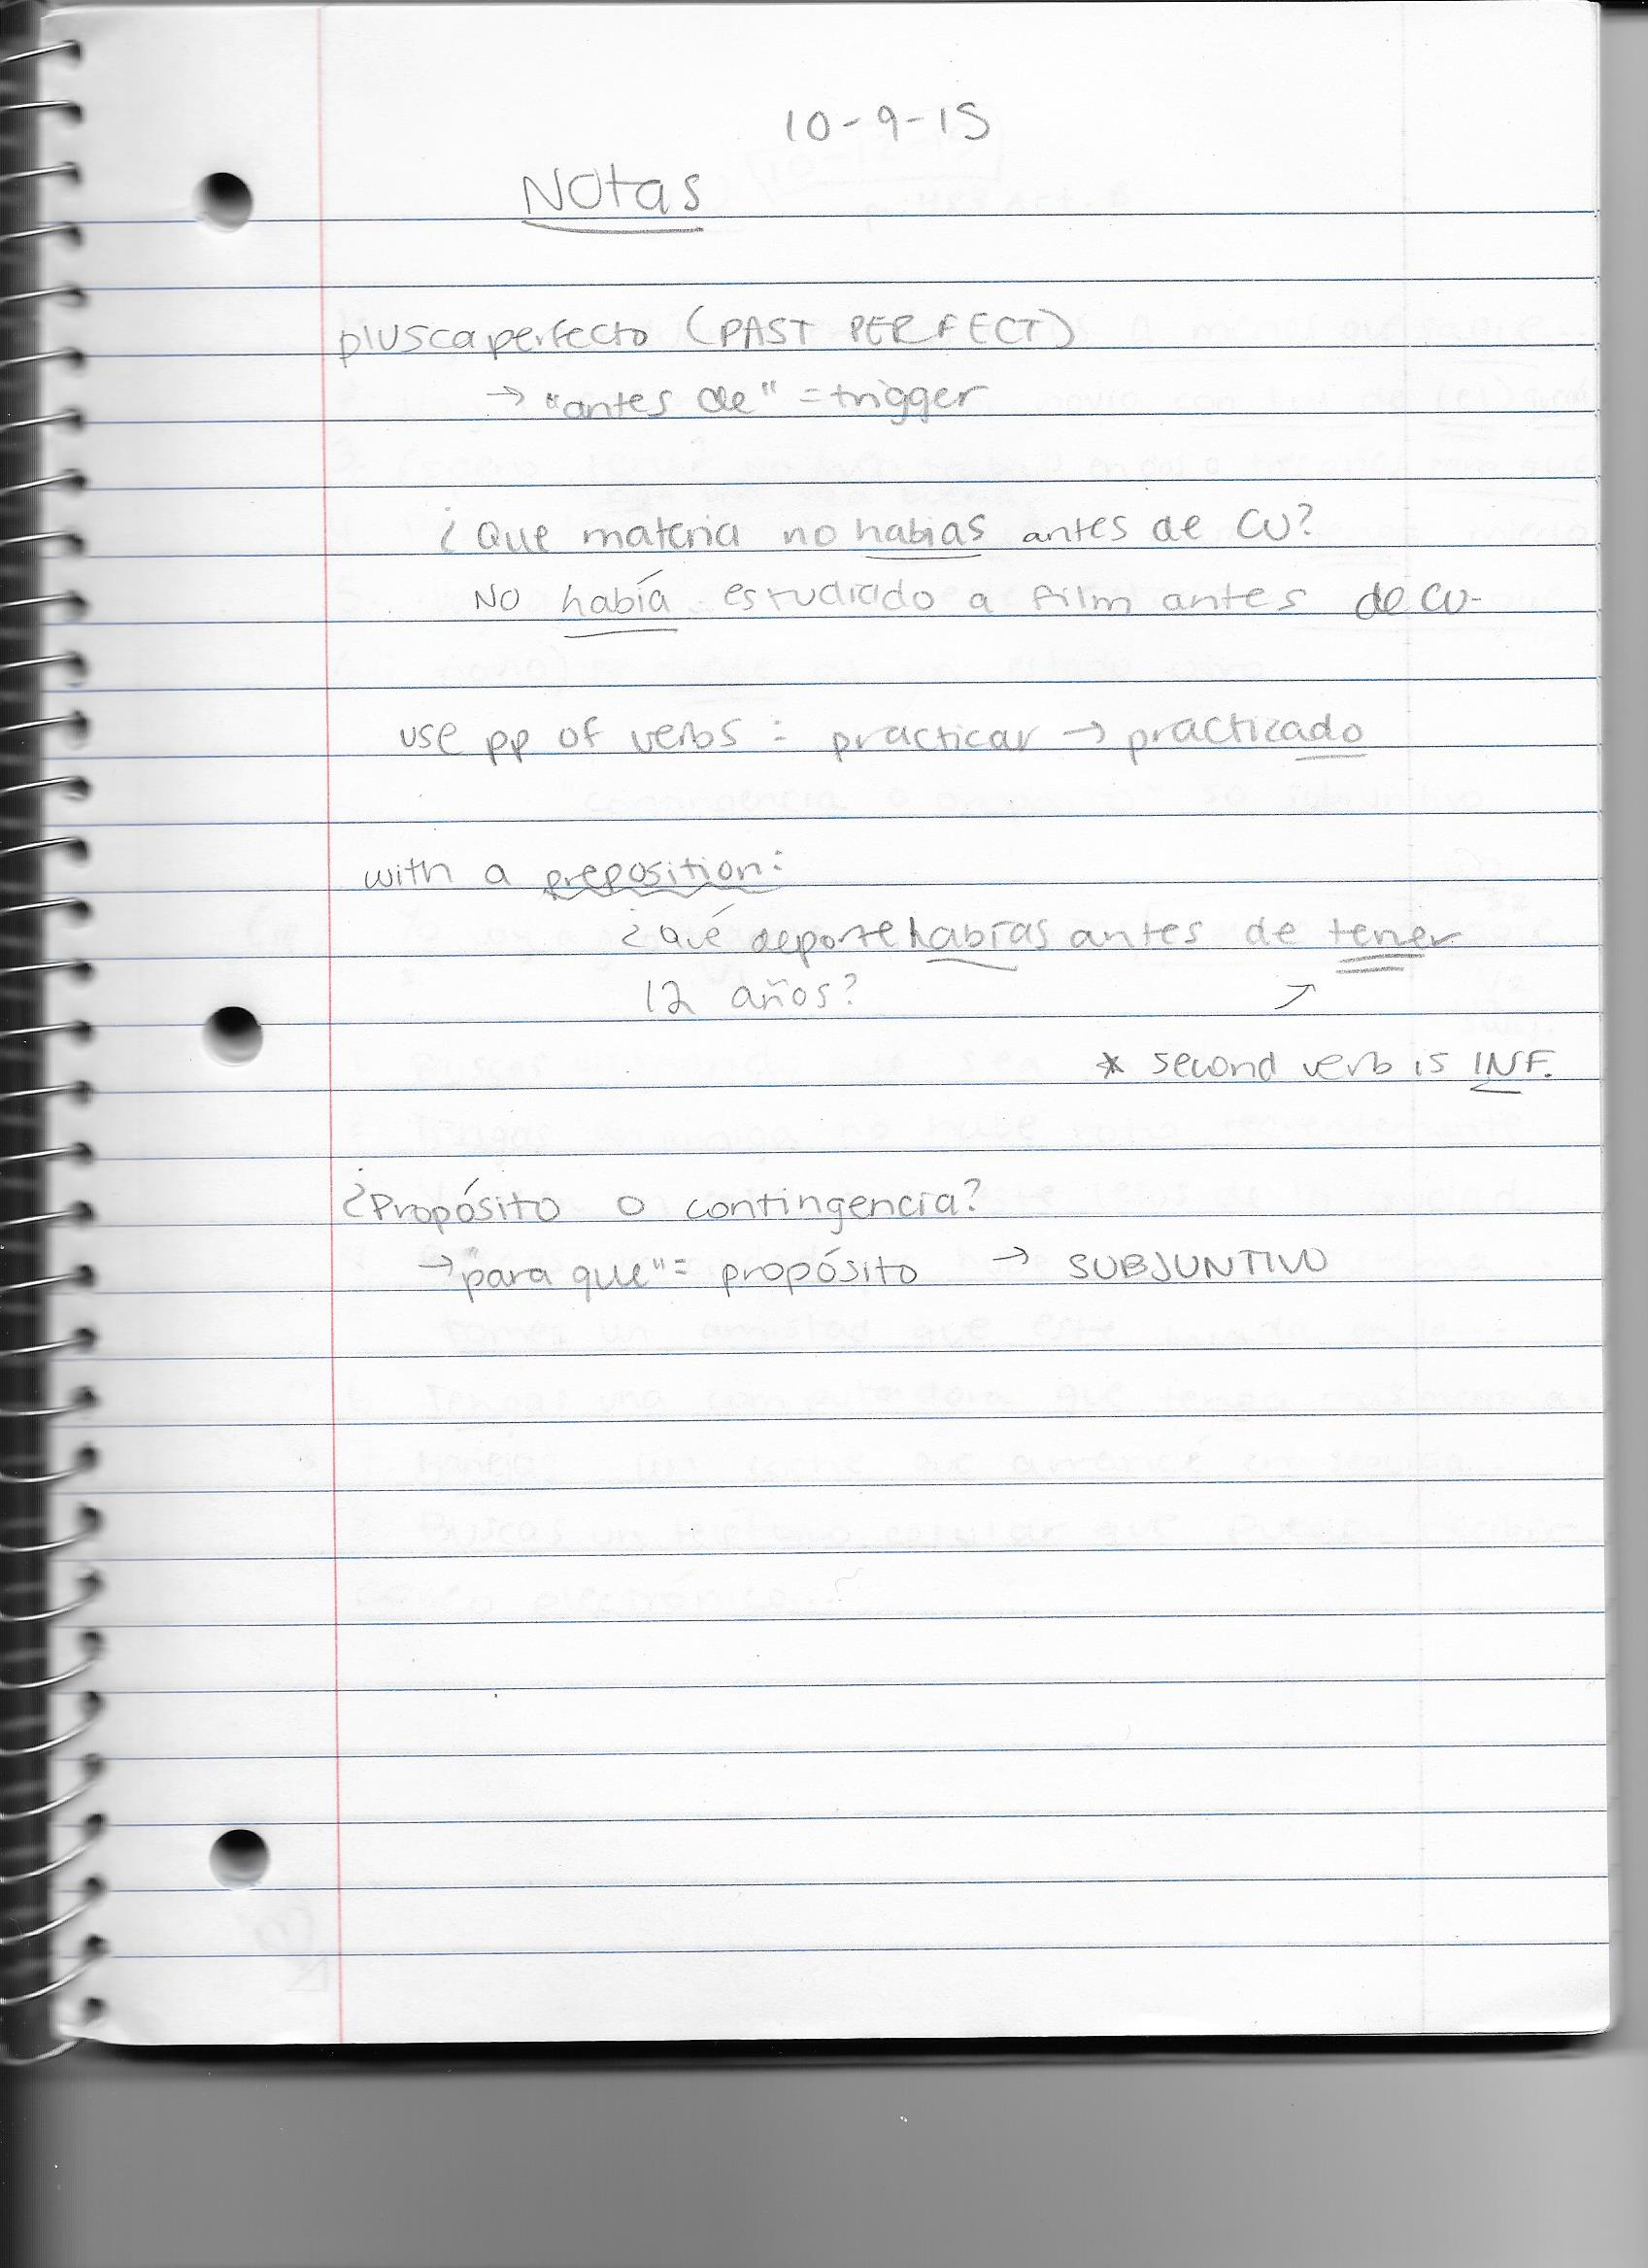 10-9-15
Notas
pluscaperfecto (PAST PERFECT)
→ "antes de" = trigger
¿Que materia no habias antes de CU?
No había estudiado a film antes de CU.
use pp of verbs: practicar → practicado
with a preposition:
¿Qué deporte habías antes de tener
12 años?
↗
* second verb is INF.
¿Propósito o contingencia?
→ "para que" = propósito → SUBJUNTIVO